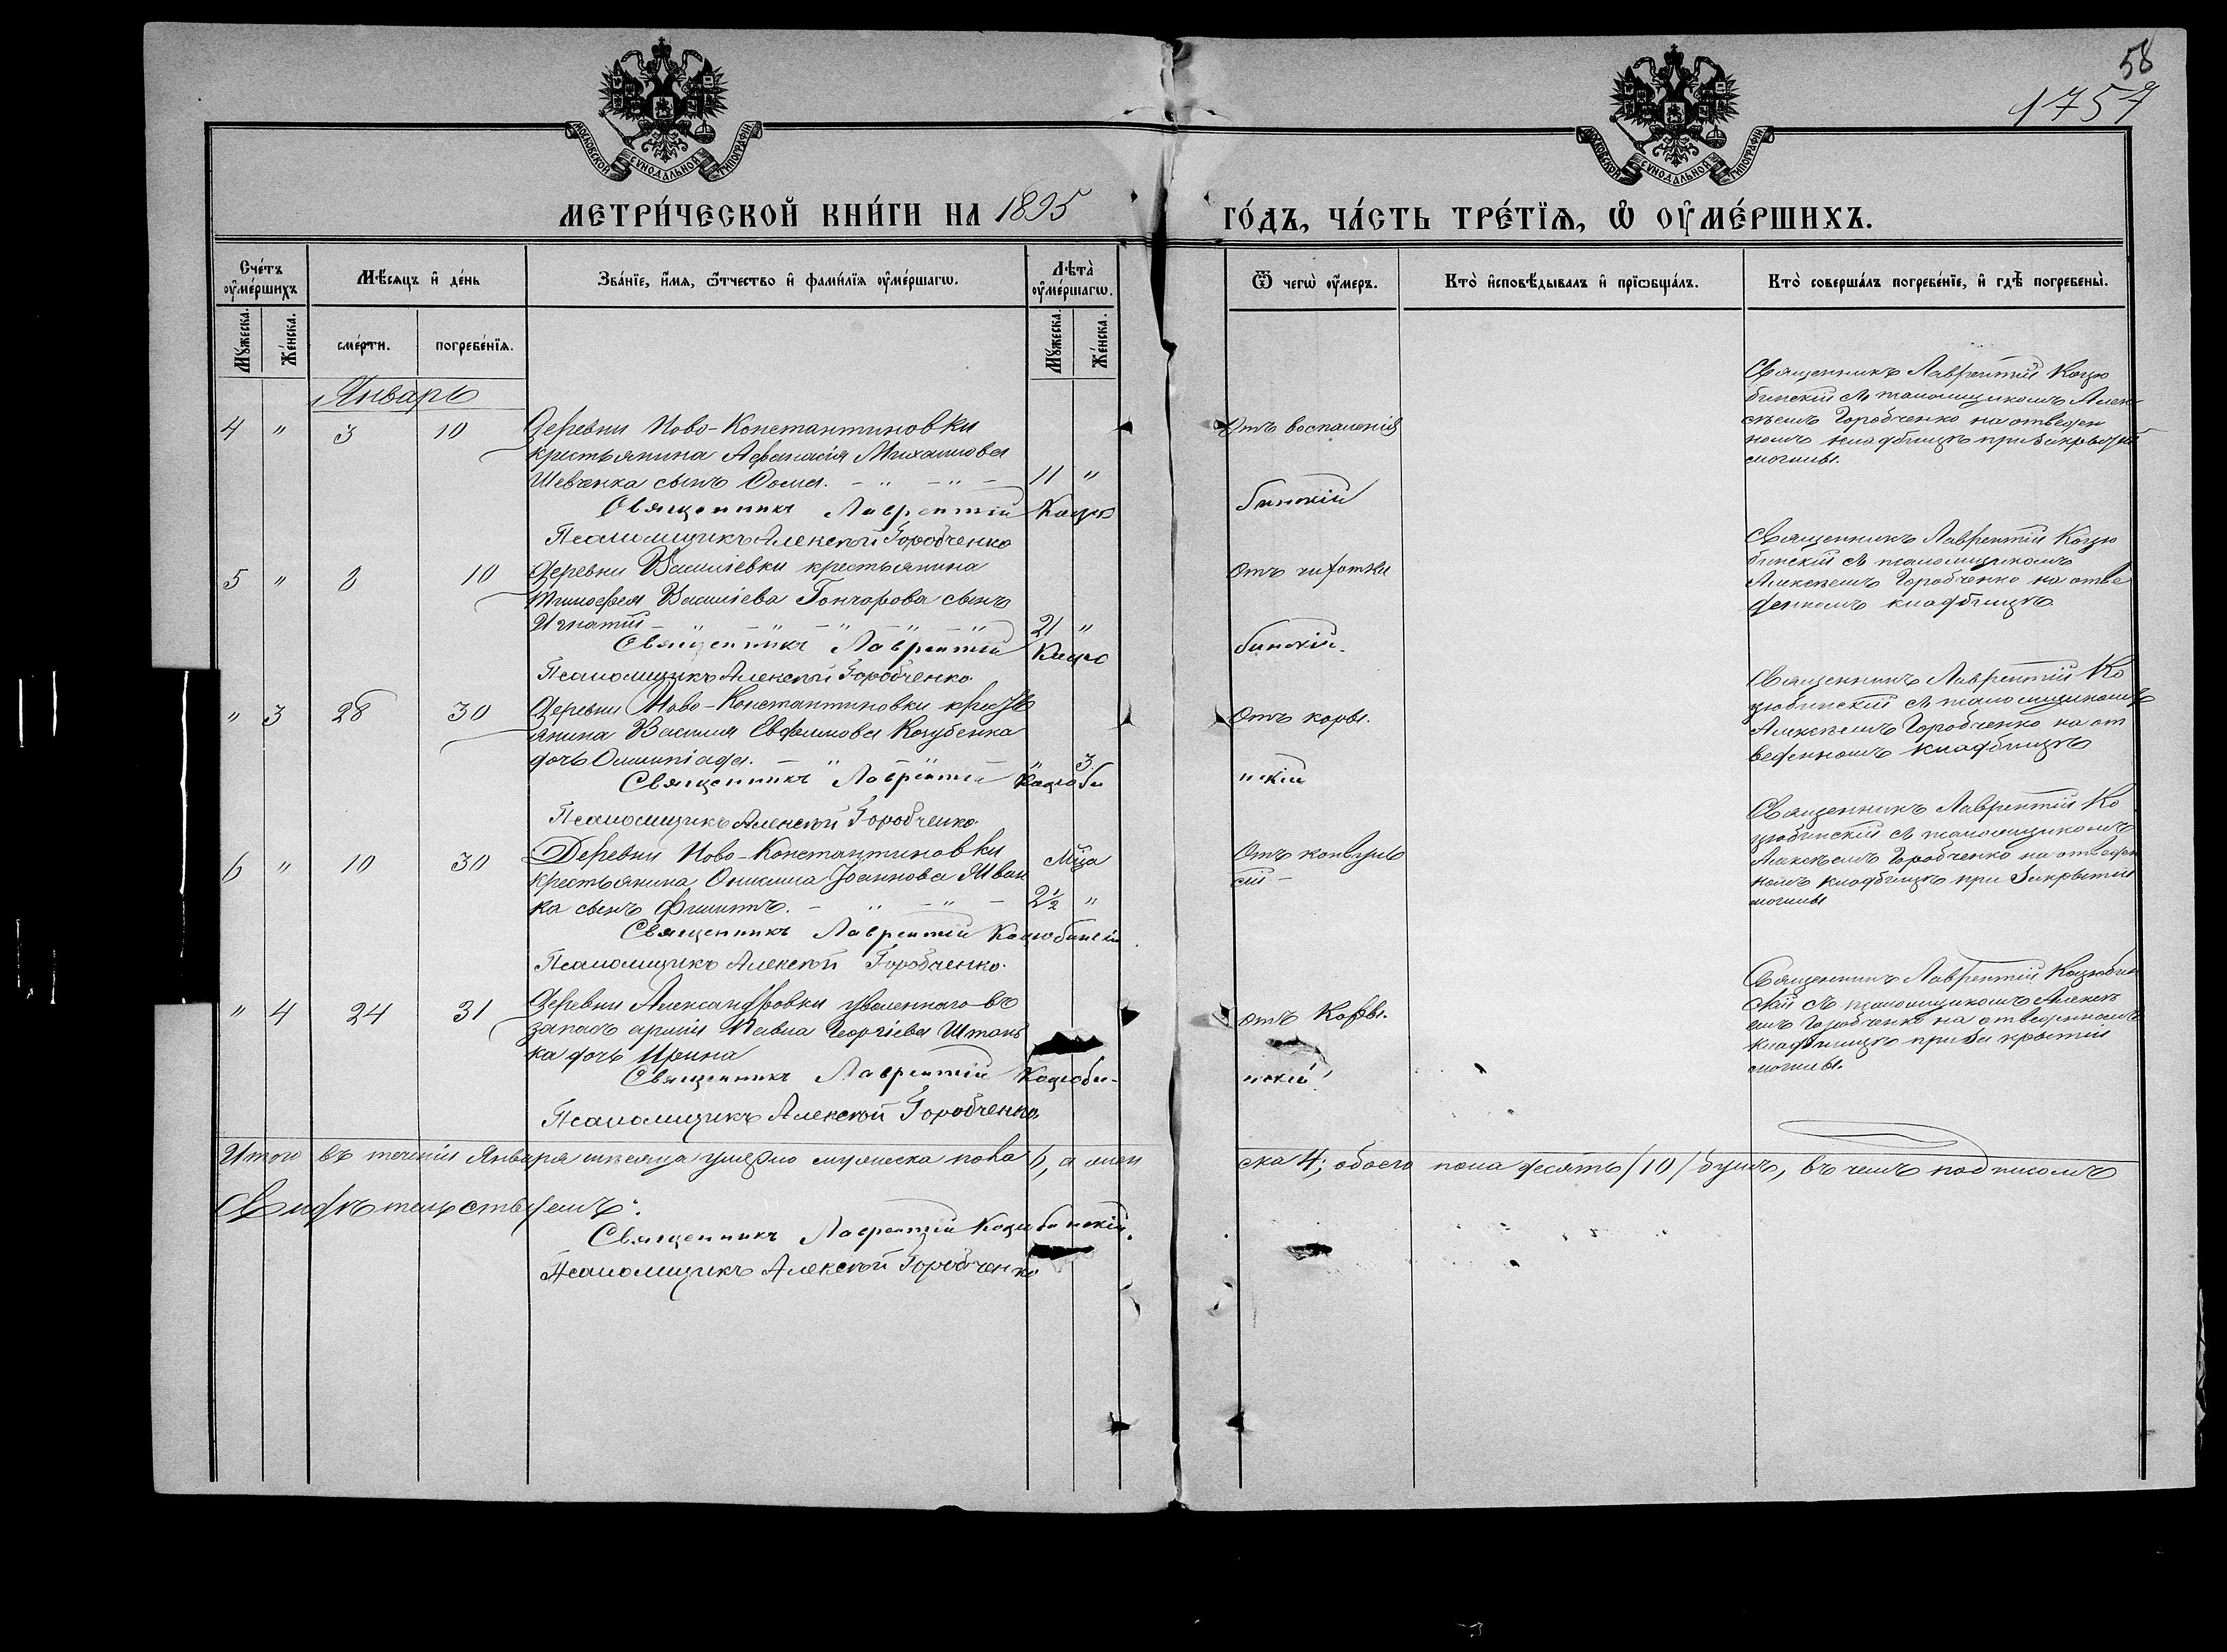 58
1757
МОСКОВСКОЙ СѴНОДАЛЬНОЙ ТИПОГРАФІИ
МОСКОВСКОЙ СѴНОДАЛЬНОЙ ТИПОГРАФІИ
МЕТРИ́ЧЕСКОЙ КНИ́ГИ НА 1895
ГО́ДЪ, ЧА́СТЬ ТРЕ́ТІѦ, Ѡ ОУМЕ́РШИХЪ.
Сче́тъ оумершихъ
Мѣсяцъ и де́нь
Зва́нїе, и́мя, ѿчество и фамилїя оуме́ршагѡ.
Лѣта̀ оуме́ршагѡ.
Ѿ чегѡ̀ оу́меръ.
Кто̀ исповѣдывалъ и прїѡбща́лъ.
Кто̀ соверша́лъ погребе́нїе, и гдѣ̀ погребены̀.
Му́жеска.
Же́нска.
сме́рти.
погребе́нїя.
Му́жеска.
Же́нска.
Январь
4 " 3 10
Деревни Ново-Константиновки
крестьянина Афанасія Михаилова
Шевченка сынъ Ѳома. - " - " - 11 "
Священникъ Лаврентій Коцю
бинскій
Псаломщикъ Алексѣй Горобченко
Отъ воспаленія
Священникъ Лаврентій Коцю
бинскій съ псаломщикомъ Алек
сѣемъ Горобченко на отведен
номъ кладбищѣ при закрытій
могилы.
5 " 3 10
Деревни Василіевки крестьянина
Тимоѳея Василіева Гончарова сынъ
Игнатій - " - " - " - " - 21 "
Священникъ Лаврентій Коцю
бинскій.
Псаломщикъ Алексѣй Горобченко
Отъ чихотки
Священникъ Лаврентій Коцю
бинскій съ псаломщикомъ
Алексѣемъ Горобченко на отве
денномъ кладбищѣ
" 3 28 30
Деревни Ново-Константиновки кресть
янина Василія Евфимова Козубенка
дочь Олимпіада. - " - " - " 3
Священникъ Лаврентій Коцюби
нскій
Псаломщикъ Алексѣй Горобченко
Отъ корьі.
Священникъ Лаврентій Ко
цюбинскій съ псаломщикомъ
Алексѣемъ Горобченко на от
веденномъ кладбищѣ
6 " 10 30
Деревни Ново-Константиновки
крестьянина Онисима Іоаннова Иван
ка сынъ Филиппъ. - " - " -
мца
2½ "
Священникъ Лаврентій Коцюбинскій
Псаломщикъ Алексѣй Горобченко.
Отъ конвуль
сій -
Священникъ Лаврентій Ко
цюбинскій съ псаломщикомъ
Алексѣемъ Горобченко на отведен
номъ кладбищѣ при закрытій
могилы
" 4 24 31
Деревни Александровки уволеннаго въ
запасъ арміи Павла Георгіева Штонь
ка дочь Ирина
Священникъ Лаврентій Коцюби-
нскій
Псаломщикъ Алексѣй Горобченко.
Отъ Корьі.
Священникъ Лаврентій Коцюбин
скій съ псаломщикомъ Алексѣ
емъ Горобченко на отведенномъ
кладбищѣ при закрытій
могилы.
Итого въ теченіи Января мѣсяца умерло мужеска пола 6, а жен
ска 4; обоего пола десять /10/ душъ, въ чемъ подписомъ
Свидѣтельствуемъ:
Священникъ Лаврентій Коцюбинскій.
Псаломщикъ Алексѣй Горобченко